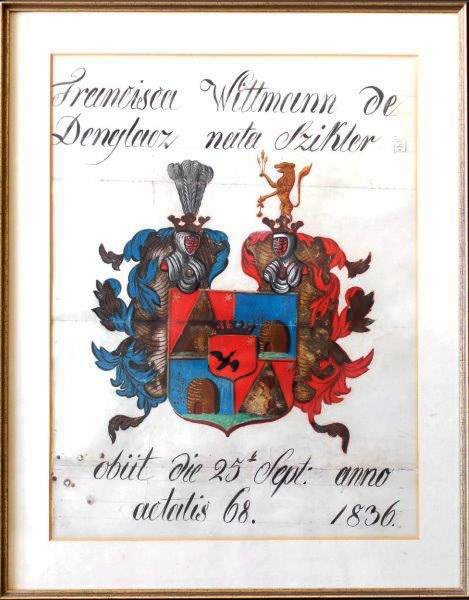 Francisca Wittmann de
Denglacz nata Szikler
obiit die 25ᵗ Sept: anno
aetatis 68. 1836.